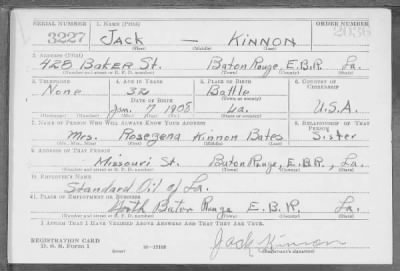 SERIAL NUMBER 1. NAME (Print) ORDER NUMBER
3227 JACK — KINNON 2036
(First) (Middle) (Last)
2. ADDRESS (Print)
428 BAKER ST. Baton Rouge, E.B.R. La.
(Number and street or R. F. D. number) (Town) (County) (State)
3. TELEPHONE 4. AGE IN YEARS 5. PLACE OF BIRTH 6. COUNTRY OF CITIZENSHIP
None 32 Batlle
DATE OF BIRTH (Town or county)
Jan. 7 1908 La. U.S.A.
(Mo.) (Day) (Yr.) (State or country)
7. NAME OF PERSON WHO WILL ALWAYS KNOW YOUR ADDRESS 8. RELATIONSHIP OF THAT PERSON
Mrs. Rosegena Kinnon Bates Sister
(Mr., Mrs., Miss) (First) (Middle) (Last)
9. ADDRESS OF THAT PERSON
Missouri St. Baton Rouge, E.B.R., La.
(Number and street or R. F. D. number) (Town) (County) (State)
10. EMPLOYER'S NAME
Standard Oil of La.
11. PLACE OF EMPLOYMENT OR BUSINESS
North Baton Rouge E.B.R. La.
(Number and street or R. F. D. number) (Town) (County) (State)
I AFFIRM THAT I HAVE VERIFIED ABOVE ANSWERS AND THAT THEY ARE TRUE.
REGISTRATION CARD
D. S. S. Form 1 (over) Jack Kinnon
(Registrant's signature)